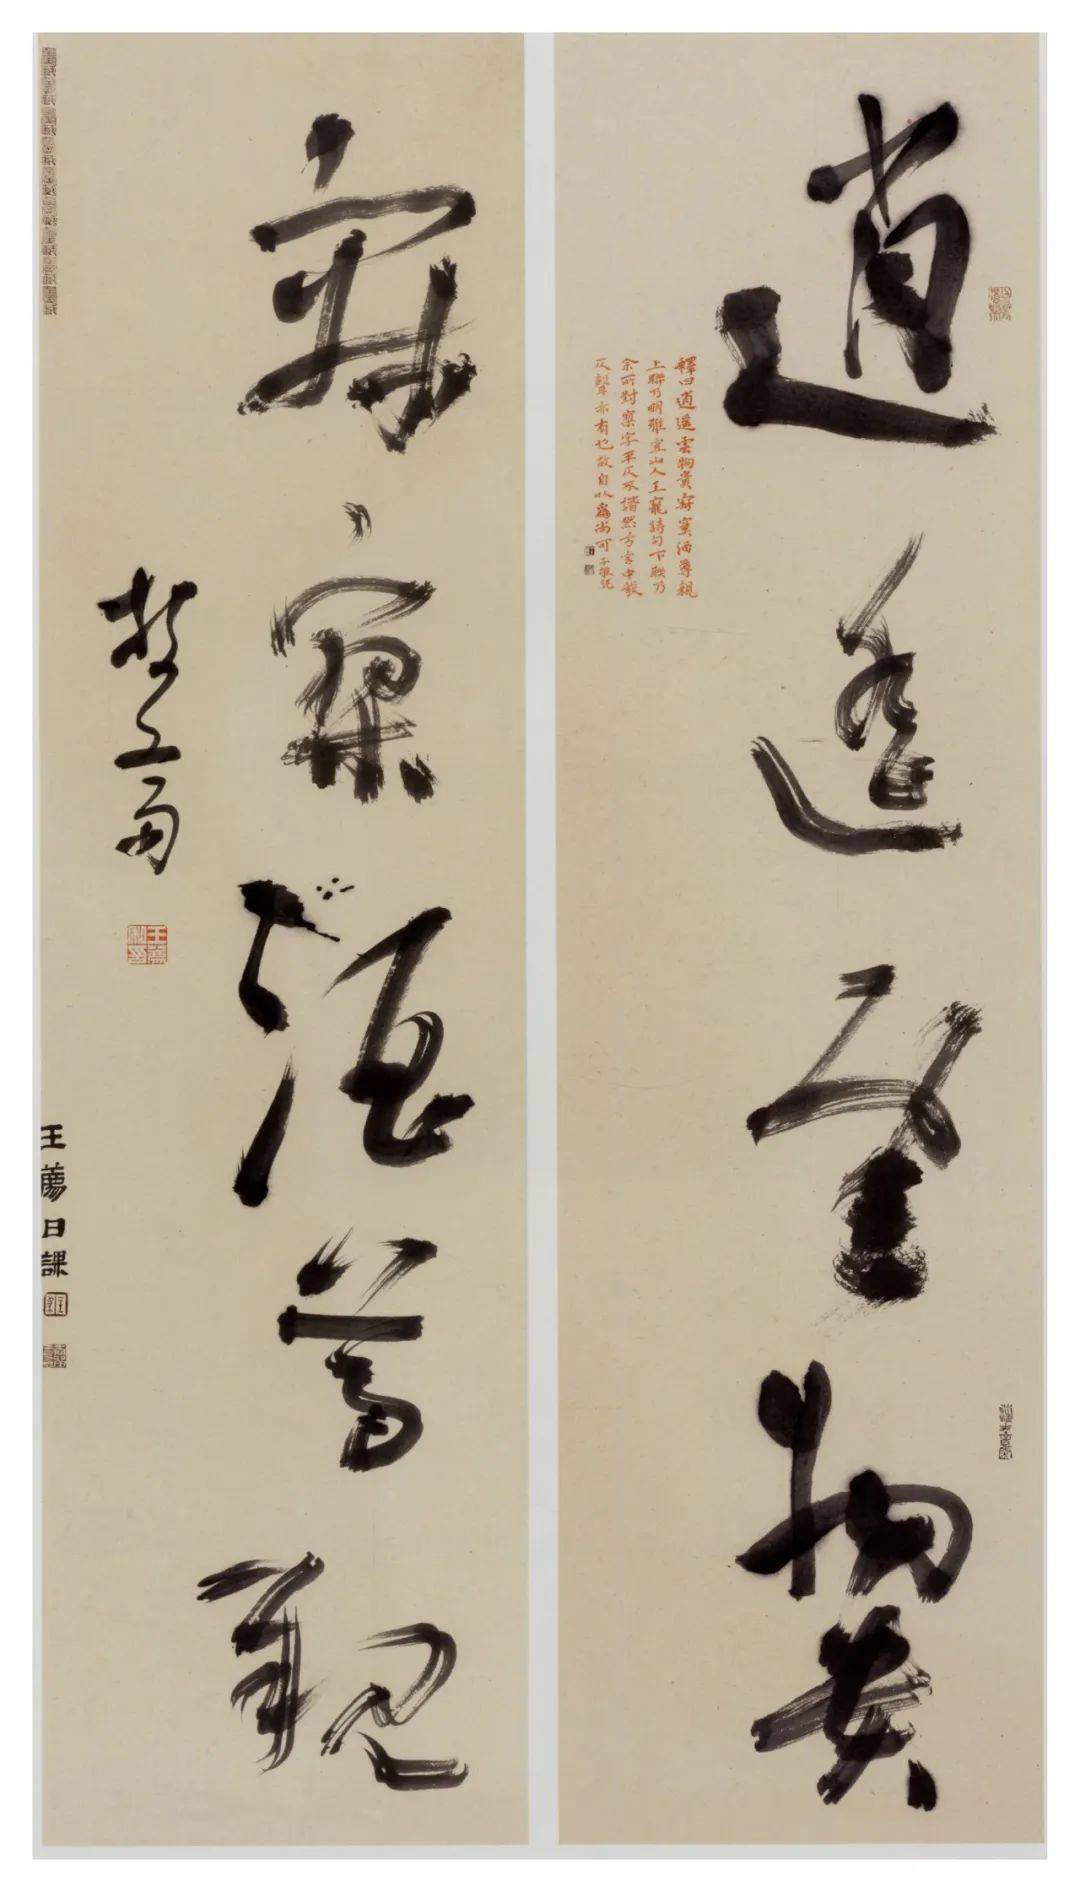 逍遥雲物賞
釋曰逍遥雲物賞寂寞酒尊親
上聯乃明雅宜山人王寵詩句下聯乃
余所對寞字平仄不諧然方言中發
仄聲亦有也故自以為尚可
寂寞酒尊親
王日課